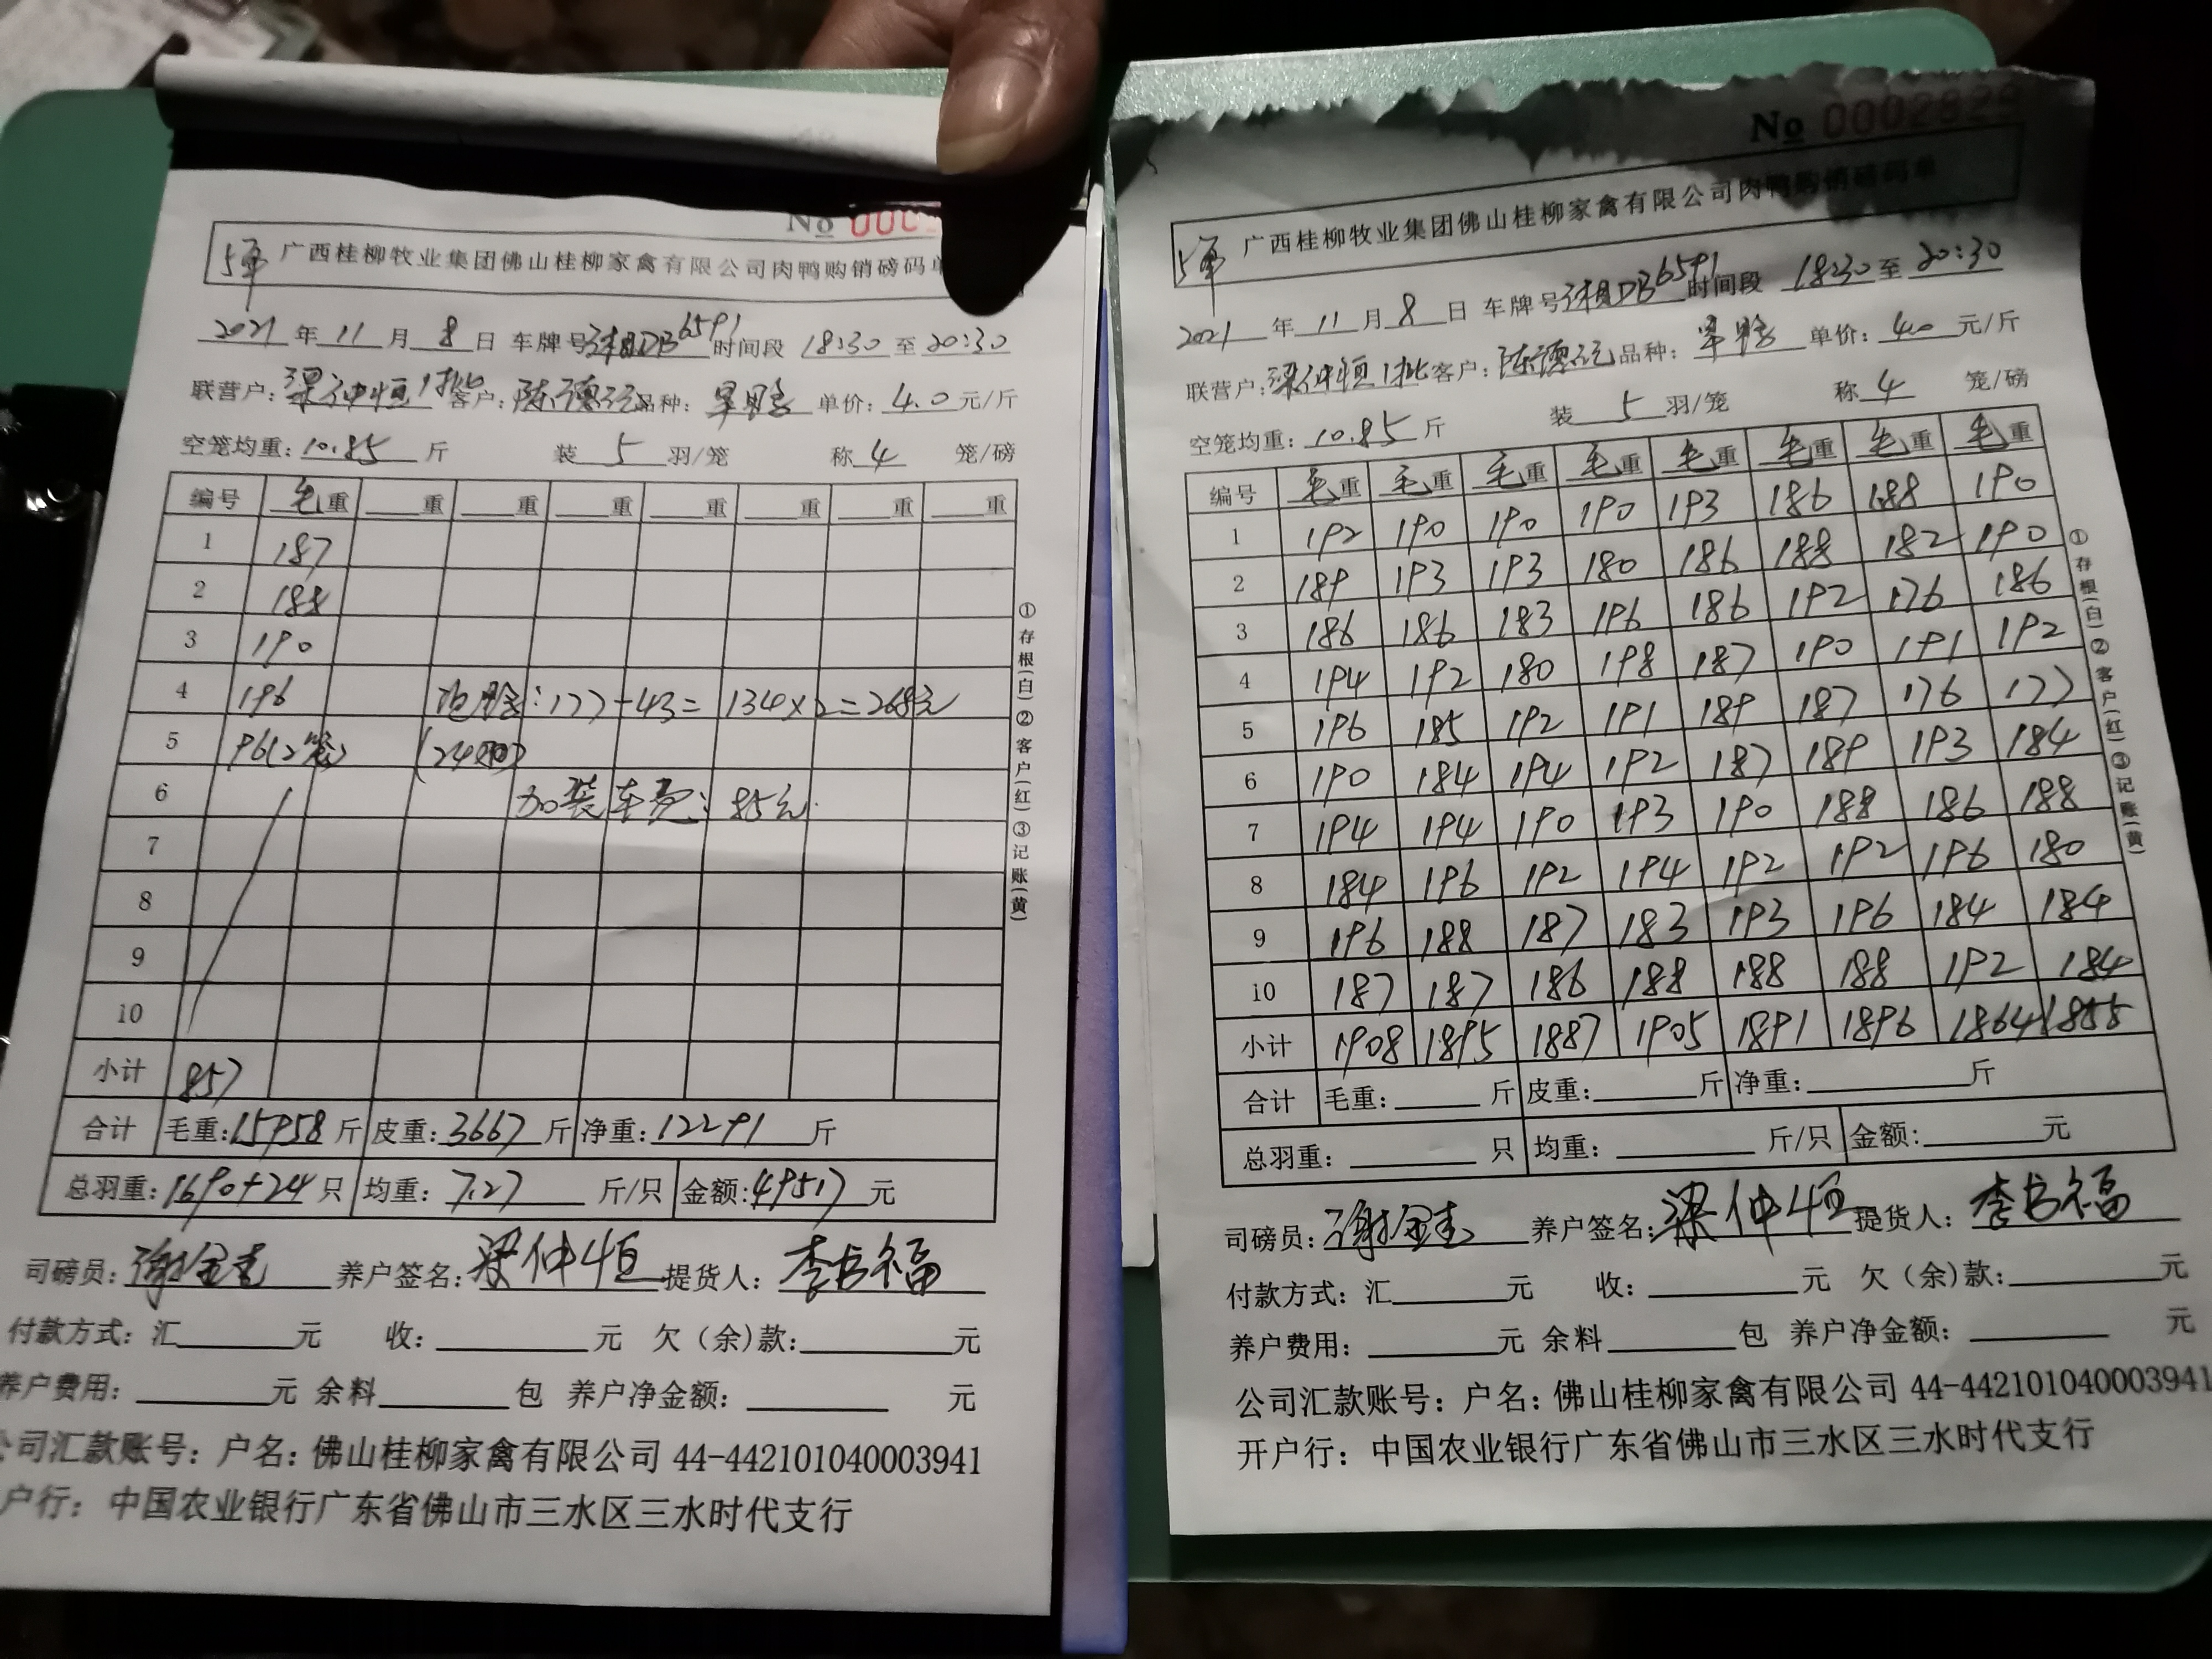 No 000
5车 广西桂柳牧业集团佛山桂柳家禽有限公司肉鸭购销磅码单
2021 年 11 月 8 日 车牌号 湘DB6591 时间段 18:30 至 20:30
联营户: 梁仲恒1批 客户: 陈德 品种: 单价: 4.0 元/斤
空笼均重: 10.85 斤 装 5 羽/笼 称 4 笼/磅
编号 毛重 重 重 重 重 重 重 重
1 187
2 188
3 190
4 196 :177-43= 134×2=268元
5 96(2笼) (24只)
6 加装车费: 85元.
7
8
9
10
小计 857
合计 毛重: 15958 斤 皮重: 3667 斤 净重: 12291 斤
总羽重: 1690+24 只 均重: 7.27 斤/只 金额: 49517 元
司磅员: 谢金 养户签名: 梁仲恒 提货人: 李书福
付款方式: 汇 元 收: 元 欠(余)款: 元
养户费用: 元 余料 包 养户净金额: 元
公司汇款账号: 户名: 佛山桂柳家禽有限公司 44-442101040003941
户行: 中国农业银行广东省佛山市三水区三水时代支行
①存根(白)②客户(红)③记账(黄)
No 0002829
5车 广西桂柳牧业集团佛山桂柳家禽有限公司肉鸭购销磅码单
2021 年 11 月 8 日 车牌号 湘DB6591 时间段 18:30 至 20:30
联营户: 梁仲恒1批 客户: 陈德 品种: 单价: 4.0 元/斤
空笼均重: 10.85 斤 装 5 羽/笼 称 4 笼/磅
编号 毛重 毛重 毛重 毛重 毛重 毛重 毛重 毛重
1 192 190 190 190 193 186 188 190
2 189 193 193 180 186 188 182 190
3 186 186 183 196 186 192 176 186
4 194 192 180 198 187 190 191 192
5 196 185 192 191 189 187 176 177
6 190 184 194 192 187 189 193 184
7 194 194 190 193 190 188 186 188
8 184 196 192 194 192 192 196 180
9 196 188 187 183 193 196 184 184
10 187 187 186 188 188 188 192 184
小计 1908 1895 1887 1905 1891 1896 1864 1855
合计 毛重: 斤 皮重: 斤 净重: 斤
总羽重: 只 均重: 斤/只 金额: 元
司磅员: 谢金 养户签名: 梁仲恒 提货人: 李书福
付款方式: 汇 元 收: 元 欠(余)款: 元
养户费用: 元 余料 包 养户净金额: 元
公司汇款账号: 户名: 佛山桂柳家禽有限公司 44-442101040003941
开户行: 中国农业银行广东省佛山市三水区三水时代支行
①存根(白)②客户(红)③记账(黄)